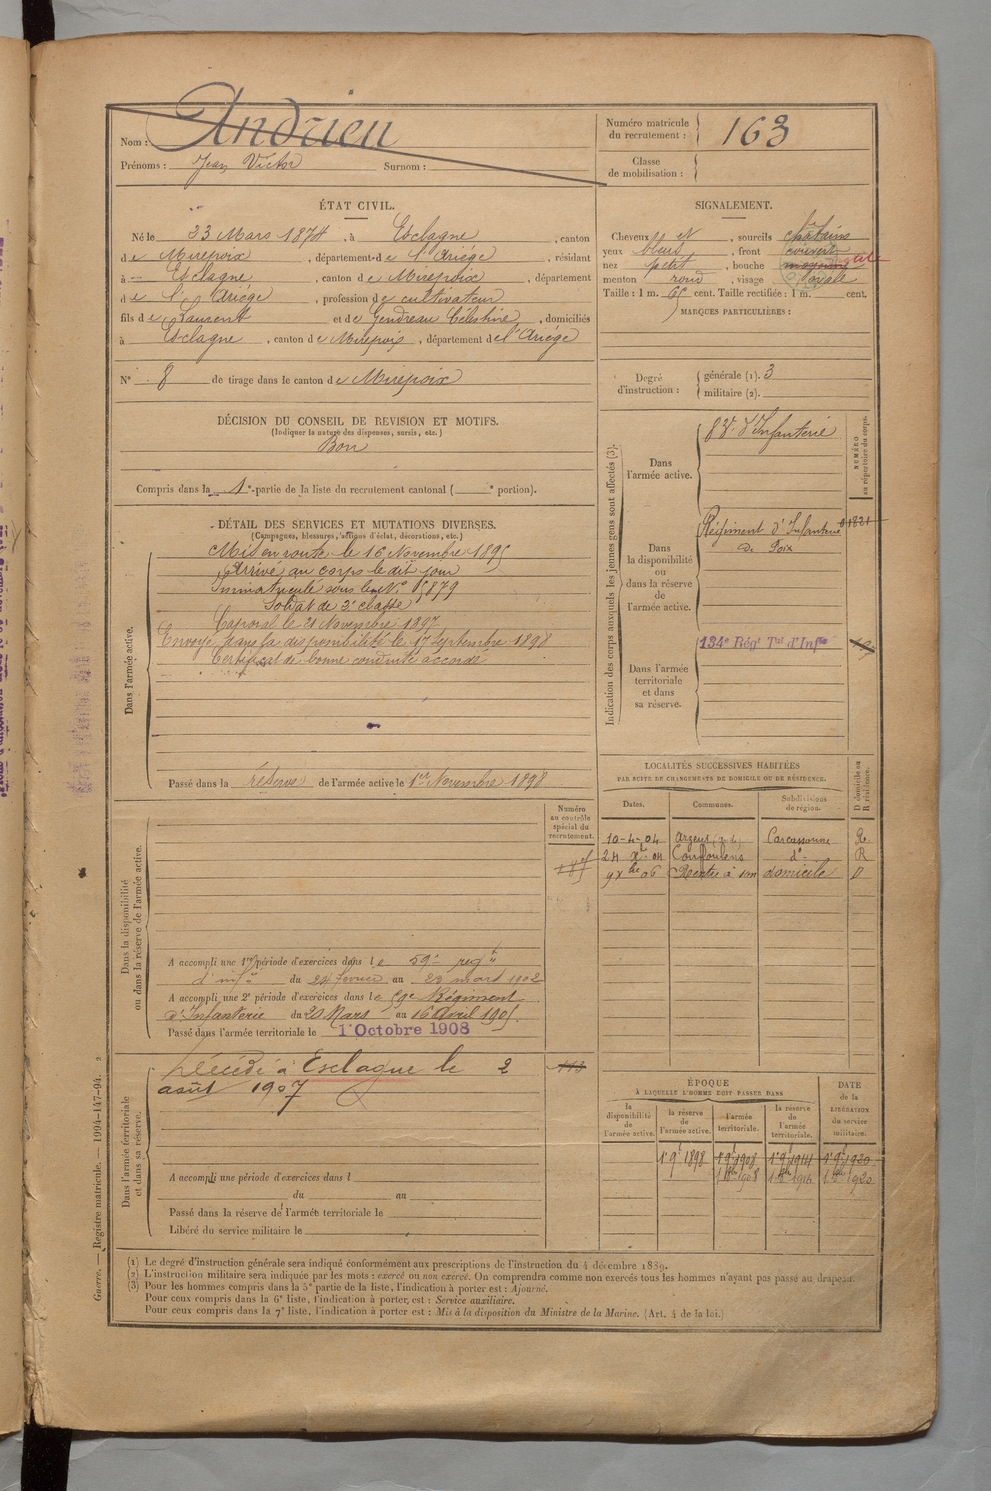 Nom : Andrieu
Prénoms : Jean Victor Surnom :
Numéro matricule du recrutement : 163
Classe de mobilisation :
ÉTAT CIVIL.
Né le 23 Mars 1874, à Esclagne, canton
de Mirepoix, département de l'Ariége, résidant
à Esclagne, canton de Mirepoix, département
de l'Ariége, profession de cultivateur
fils de Laurent et de Gendreau Célestine, domiciliés
à Esclagne, canton de Mirepoix, département de l'Ariége
N° 8 de tirage dans le canton de Mirepoix
SIGNALEMENT.
Cheveux et , sourcils châtains
yeux bleus , front couvert
nez petit , bouche moyenne petite
menton rond , visage ovale
Taille : 1 m. 65 cent. Taille rectifiée : 1 m. cent.
MARQUES PARTICULIÈRES :
Degré d'instruction : générale (1). 3
militaire (2).
DÉCISION DU CONSEIL DE REVISION ET MOTIFS.
(Indiquer la nature des dispenses, sursis, etc.)
Bon
Compris dans la 1e partie de la liste du recrutement cantonal ( e portion).
DÉTAIL DES SERVICES ET MUTATIONS DIVERSES.
(Campagnes, blessures, actions d'éclat, décorations, etc.)
Dans l'armée active.
Mis en route le 16 Novembre 1895
Arrivé au corps le dit jour
Immatriculé sous le N° 5879
Soldat de 2e classe
Caporal le 21 Novembre 1897
Envoyé dans la disponibilité le 17 Septembre 1898
Certificat de bonne conduite accordé
Passé dans la réserve de l'armée active le 1er Novembre 1898
Indication des corps auxquels les jeunes gens sont affectés (3).
NUMÉRO au répertoire du corps.
Dans l'armée active.
83e d'Infanterie
Dans la disponibilité ou dans la réserve de l'armée active.
Régiment d'Infanterie
de Foix
Dans l'armée territoriale et dans sa réserve.
134e Régt Tal d'Infie
LOCALITÉS SUCCESSIVES HABITÉES
PAR SUITE DE CHANGEMENTS DE DOMICILE OU DE RÉSIDENCE.
Dates. Communes. Subdivisions de région. D domicile ou R résidence.
10-4-04 Arzens Carcassonne R
24 Xe 04 Couffoulens d° R
9 Xbre 06 Rentré à son domicile D
Dans la disponibilité ou dans la réserve de l'armée active.
Numéro au contrôle spécial du recrutement.
A accompli une 1re période d'exercices dans le 59e regt
d'infie du 24 fevrier au 23 mart 1902
A accompli une 2e période d'exercices dans le 59e Régiment
d'Infanterie du 20 Mars au 16 Avril 1905.
Passé dans l'armée territoriale le 1 Octobre 1908
Dans l'armée territoriale et dans sa réserve.
Décédé à Esclagne le 2
août 1907
113
A accompli une période d'exercices dans l
du au
Passé dans la réserve de l'armée territoriale le
Libéré du service militaire le
ÉPOQUE
À LAQUELLE L'HOMME DOIT PASSER DANS
la disponibilité de l'armée active. la réserve de l'armée active. l'armée territoriale. la réserve de l'armée territoriale. DATE de la LIBÉRATION du service militaire.
1er 9e 1898 1er 9e 1908 1er 9e 1914 1er 9e 1920
1 8bre 1908 1 8bre 1914 1 8bre 1920
(1) Le degré d'instruction générale sera indiqué conformément aux prescriptions de l'instruction du 4 décembre 1889.
(2) L'instruction militaire sera indiquée par les mots : exercé ou non exercé. On comprendra comme non exercés tous les hommes n'ayant pas passé au drapeau.
(3) Pour les hommes compris dans la 5e partie de la liste, l'indication à porter est : Ajourné.
Pour ceux compris dans la 6e liste, l'indication à porter, est : Service auxiliaire.
Pour ceux compris dans la 7e liste, l'indication à porter est : Mis à la disposition du Ministre de la Marine. (Art. 4 de la loi.)
Guerre. — Registre matricule. — 1994-147-94. 2